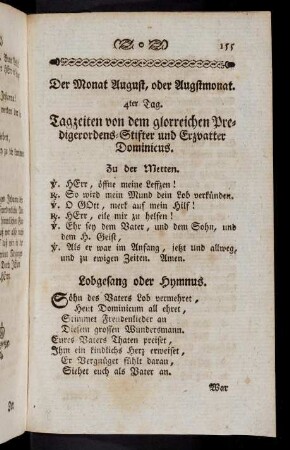 155
Der Monat August, oder Augstmonat.
4ter Tag.
Tagzeiten von dem glorreichen Pre-
digerordens-Stifter und Erzvatter
Dominicus.
Zu der Metten.
℣. HErr, öffne meine Leffzen!
℟. So wird mein Mund dein Lob verkünden.
℣. O GOtt, merk auf mein Hilf!
℟. HErr, eile mir zu helfen!
℣. Ehr sey dem Vater, und dem Sohn, und
dem H. Geist,
℣. Als er war im Anfang, jetzt und allweg,
und zu ewigen Zeiten. Amen.
Lobgesang oder Hymnus.
Söhn des Vaters Lob vermehret,
Heut Dominicum all ehret,
Stimmet Freudenlieder an
Diesem grossen Wundersmann.
Eures Vaters Thaten preiset,
Ihm ein kindlichs Herz erweiset,
Er Vergnüget fühlt daran,
Siehet euch als Vater an.
War